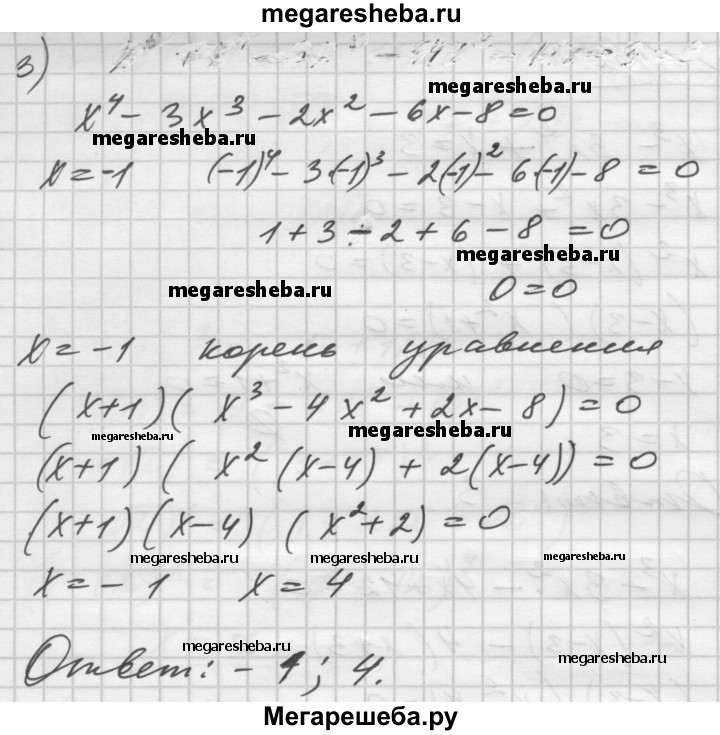 megaresheba.ru
3)
megaresheba.ru
x⁴ - 3x³ - 2x² - 6x - 8 = 0
megaresheba.ru
x = -1 (-1)⁴ - 3·(-1)³ - 2(-1)² - 6·(-1) - 8 = 0
1 + 3 - 2 + 6 - 8 = 0
megaresheba.ru
megaresheba.ru
0 = 0
x = -1 корень уравнения
(x+1)(x³ - 4x² + 2x - 8) = 0
megaresheba.ru megaresheba.ru
(x+1)(x²(x-4) + 2(x-4)) = 0
(x+1)(x-4)(x²+2) = 0
megaresheba.ru megaresheba.ru megaresheba.ru
x = -1 x = 4
megaresheba.ru
Ответ: -1; 4.
megaresheba.ru
Мегарешеба.ру